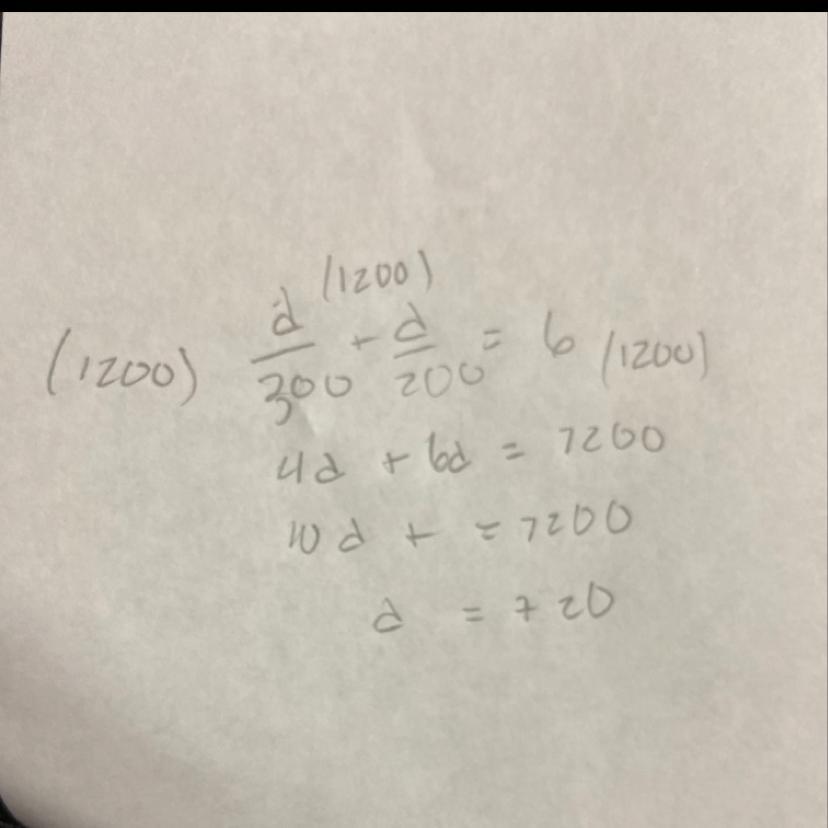 (1200)
(1200) d/300 + d/200 = 6 (1200)
4d + 6d = 7200
10d + = 7200
d = 720